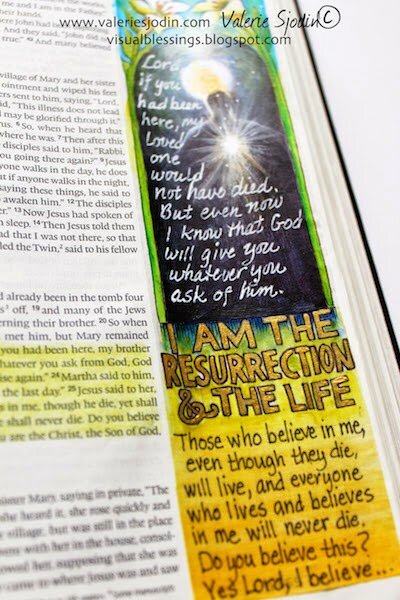 www.valeriesjodin.com Valerie Sjodin©
visualblessings.blogspot.com
me and I am in the Father.
their hands.
And they said, "John did no
true." 42 And many believed
village of Mary and her sister
ointment and wiped his feet
ers sent to him, saying, "Lord,
id, "This illness does not lead
may be glorified through it."
us. 6 So, when he heard that
where he was. 7 Then after this
disciples said to him, "Rabbi,
you going there again?" 9 Jesus
yone walks in the day, he does
ut if anyone walks in the night,
saying these things, he said to
awaken him." 12 The disciples
r." 13 Now Jesus had spoken of
sleep. 14 Then Jesus told them
ad that I was not there, so that
led the Twin,2 said to his fellow
d already been in the tomb four
s3 off, 19 and many of the Jews
erning their brother. 20 So when
met him, but Mary remained
you had been here, my brother
hatever you ask from God, God
ise again." 24 Martha said to him,
the last day." 25 Jesus said to her,
s in me, though he die, yet shall
e shall never die. Do you believe
u are the Christ, the Son of God,
sister Mary, saying in private, "The
she heard it, she rose quickly and
village, but was still in the place
were with her in the house, consol-
owed her, supposing that she was
came to where Jesus was and saw
Lord
if you
had been
here, my
loved
one
would
not have died.
But even now
I know that God
will give you
whatever you
ask of him.
I AM THE
RESURRECTION
& THE LIFE
Those who believe in me,
even though they die,
will live, and everyone
who lives and believes
in me will never die.
Do you believe this?
Yes Lord, I believe...